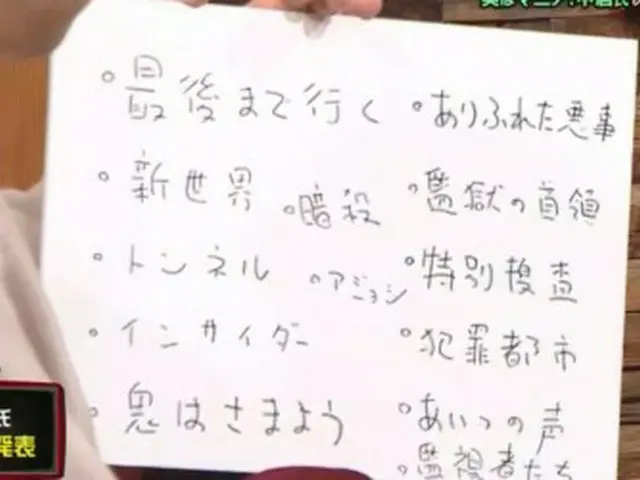 実はマニア!中居氏の
・最後まで行く
・新世界
・暗殺
・トンネル
・アジョシ
・インサイダー
・鬼はさまよう
・ありふれた悪事
・監獄の首領
・特別捜査
・犯罪都市
・あいつの声
・監視者たち
氏
発表